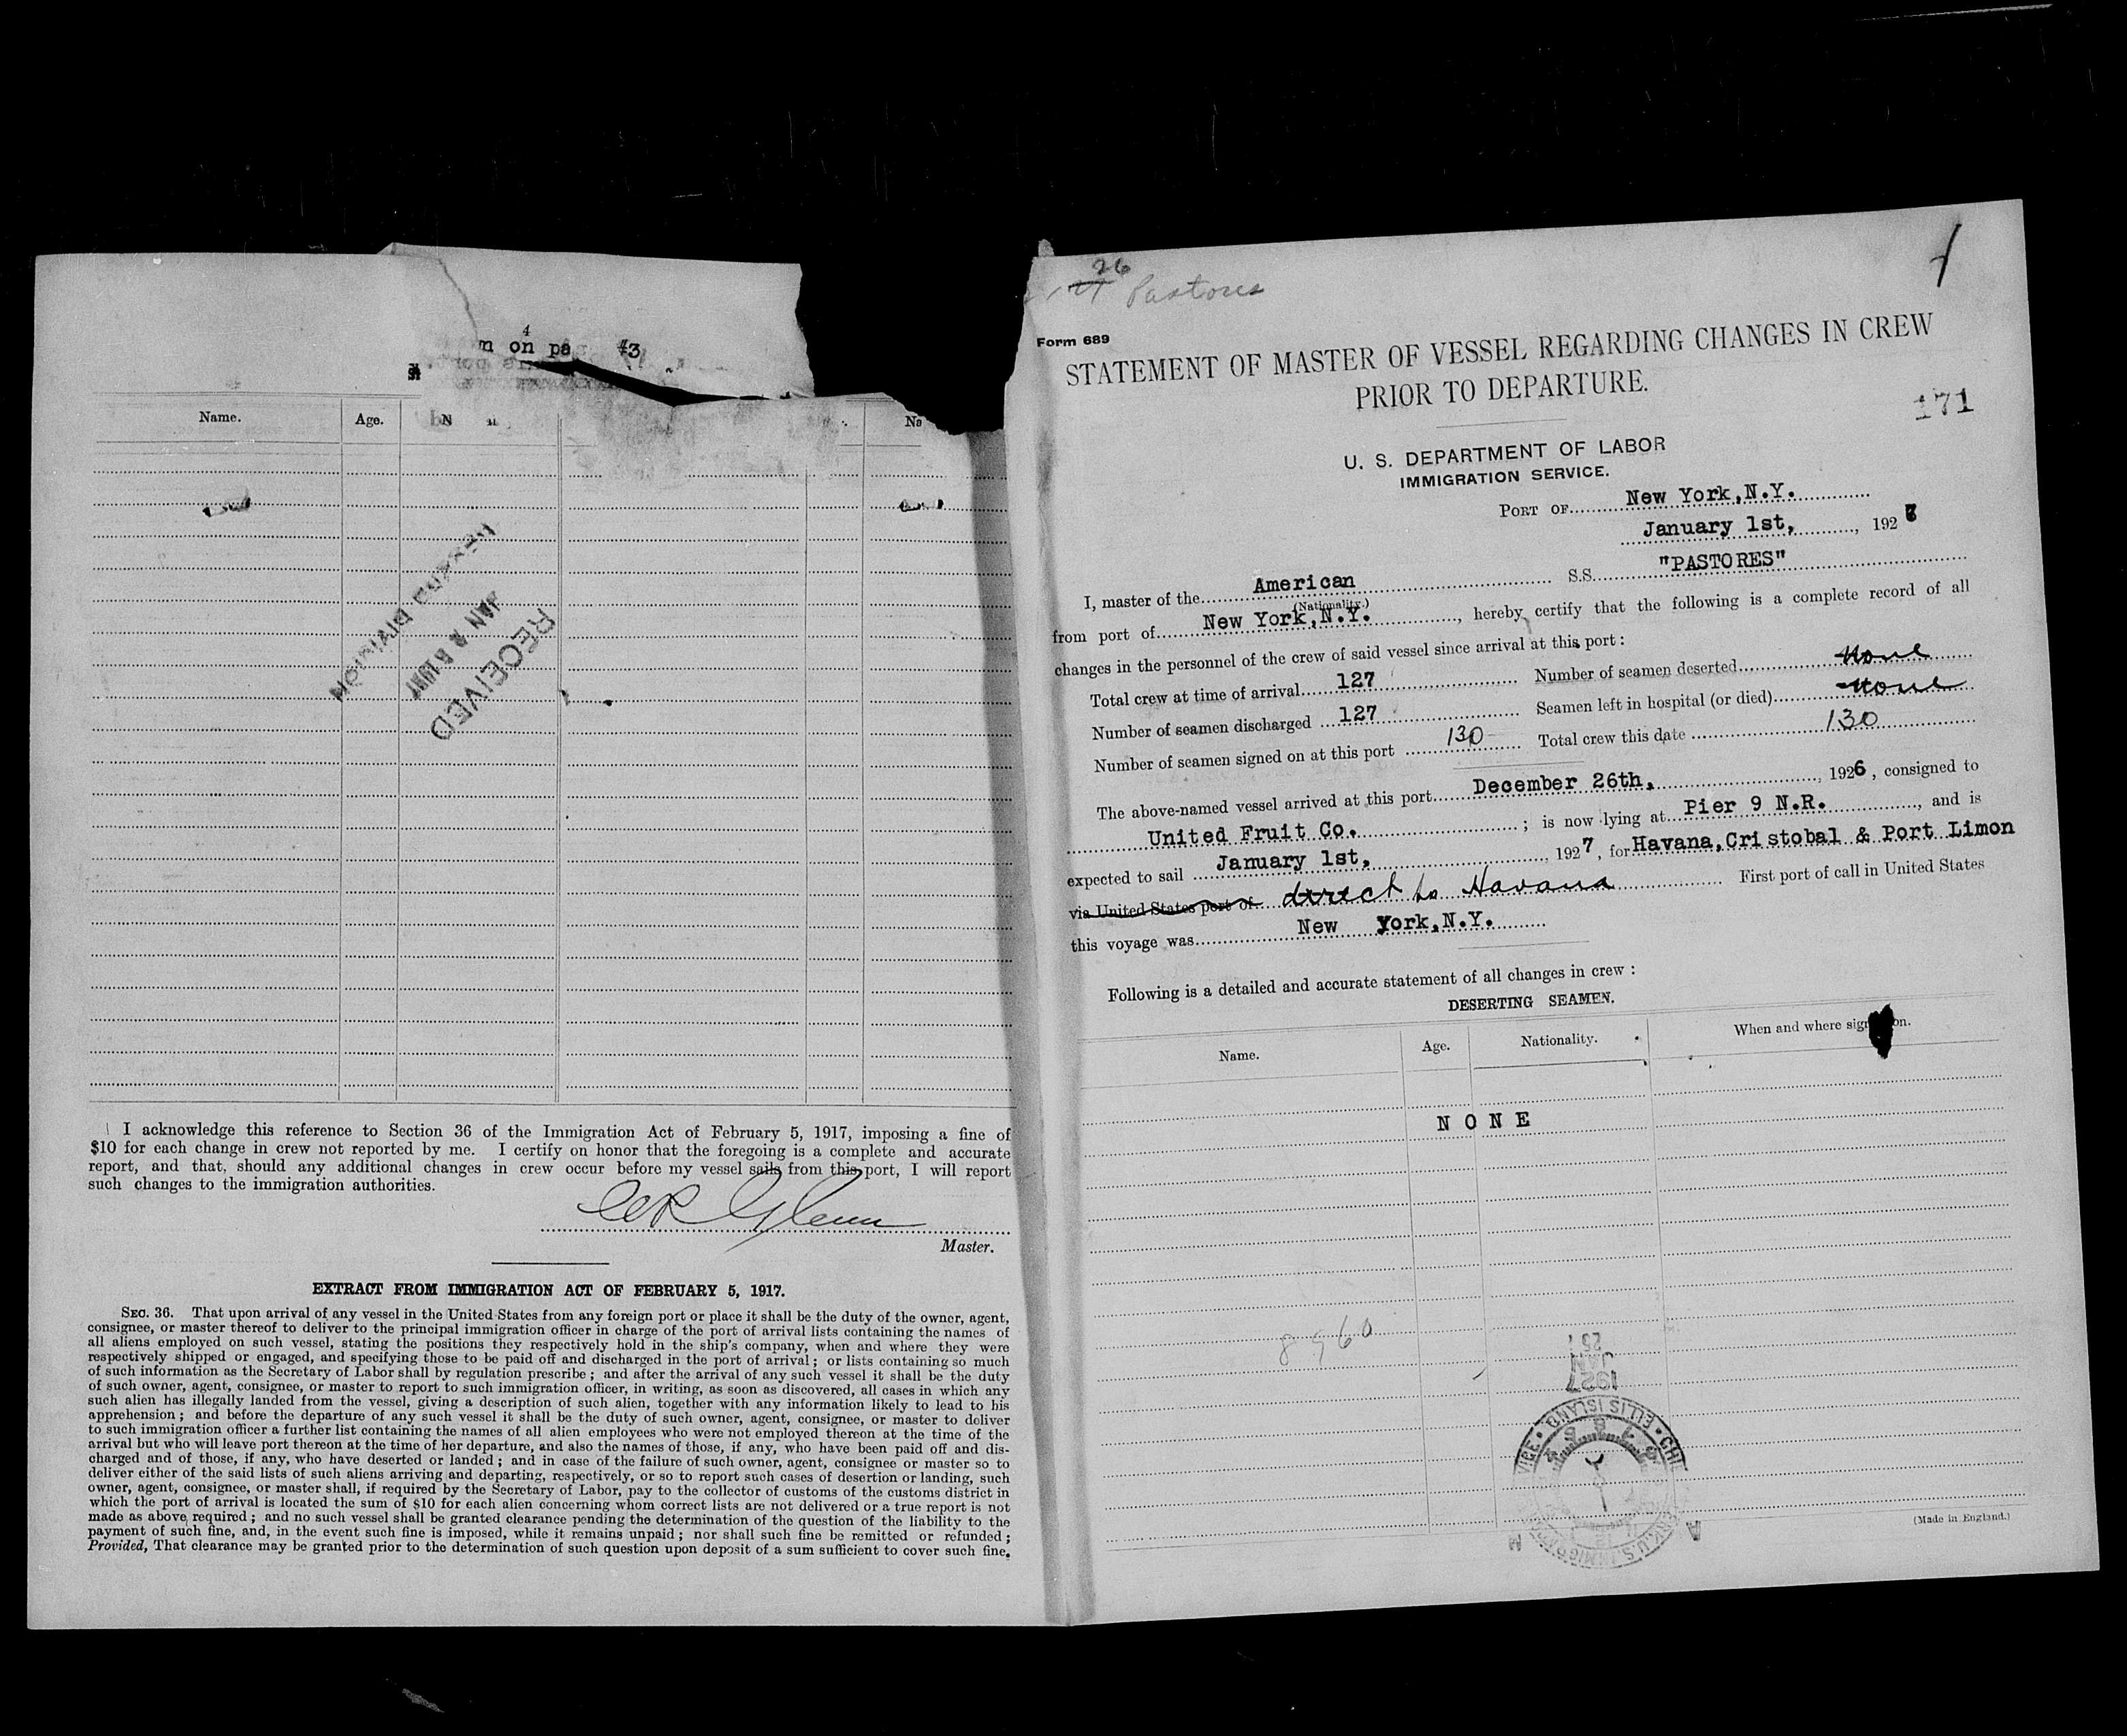 4
on pa #3
Name. Age. N
I acknowledge this reference to Section 36 of the Immigration Act of February 5, 1917, imposing a fine of
$10 for each change in crew not reported by me. I certify on honor that the foregoing is a complete and accurate
report, and that, should any additional changes in crew occur before my vessel sails from this port, I will report
such changes to the immigration authorities.
Master.
EXTRACT FROM IMMIGRATION ACT OF FEBRUARY 5, 1917.
SEC. 36. That upon arrival of any vessel in the United States from any foreign port or place it shall be the duty of the owner, agent,
consignee, or master thereof to deliver to the principal immigration officer in charge of the port of arrival lists containing the names of
all aliens employed on such vessel, stating the positions they respectively hold in the ship's company, when and where they were
respectively shipped or engaged, and specifying those to be paid off and discharged in the port of arrival; or lists containing so much
of such information as the Secretary of Labor shall by regulation prescribe; and after the arrival of any such vessel it shall be the duty
of such owner, agent, consignee, or master to report to such immigration officer, in writing, as soon as discovered, all cases in which any
such alien has illegally landed from the vessel, giving a description of such alien, together with any information likely to lead to his
apprehension; and before the departure of any such vessel it shall be the duty of such owner, agent, consignee, or master to deliver
to such immigration officer a further list containing the names of all alien employees who were not employed thereon at the time of the
arrival but who will leave port thereon at the time of her departure, and also the names of those, if any, who have been paid off and dis-
charged and of those, if any, who have deserted or landed; and in case of the failure of such owner, agent, consignee or master so to
deliver either of the said lists of such aliens arriving and departing, respectively, or so to report such cases of desertion or landing, such
owner, agent, consignee, or master shall, if required by the Secretary of Labor, pay to the collector of customs of the customs district in
which the port of arrival is located the sum of $10 for each alien concerning whom correct lists are not delivered or a true report is not
made as above required; and no such vessel shall be granted clearance pending the determination of the question of the liability to the
payment of such fine, and, in the event such fine is imposed, while it remains unpaid; nor shall such fine be remitted or refunded;
Provided, That clearance may be granted prior to the determination of such question upon deposit of a sum sufficient to cover such fine.
DIVISION
JAN
RECEIVED
26
Pastores
Form 689
STATEMENT OF MASTER OF VESSEL REGARDING CHANGES IN CREW
PRIOR TO DEPARTURE.
171
U. S. DEPARTMENT OF LABOR
IMMIGRATION SERVICE.
PORT OF New York,N.Y.
January 1st, , 1927
I, master of the American S.S. "PASTORES"
(Nationality.)
from port of New York,N.Y. , hereby certify that the following is a complete record of all
changes in the personnel of the crew of said vessel since arrival at this port:
Total crew at time of arrival 127 Number of seamen deserted None
Number of seamen discharged 127 Seamen left in hospital (or died) None
Number of seamen signed on at this port 130 Total crew this date 130
The above-named vessel arrived at this port December 26th, , 1926, consigned to
United Fruit Co. ; is now lying at Pier 9 N.R. , and is
expected to sail January 1st, , 1927, for Havana,Cristobal & Port Limon
via United States port of direct to Havana First port of call in United States
this voyage was New York,N.Y.
Following is a detailed and accurate statement of all changes in crew:
DESERTING SEAMEN.
Name. Age. Nationality. When and where sign on.
NONE
1927
JAN
ELLIS ISLAND
(Made in England.)